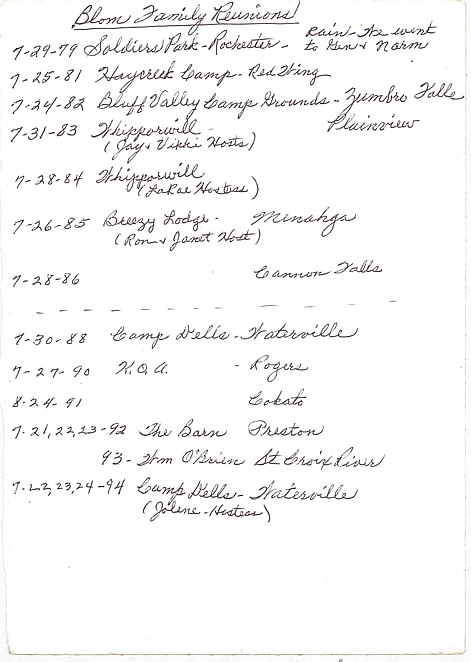 Blom Family Reunions
7-29-79 Soldiers Park - Rochester - Rain - We went
to Gen & Norm
7-25-81 Haycreek Camp - Red Wing
7-24-82 Bluff Valley Camp Grounds - Zumbro Falls
7-31-83 Whipporwill - Plainview
(Jay & Vikki Hosts)
7-28-84 Whipporwill
(LaRae Hostess)
7-26-85 Breezy Lodge - Menahga
(Ron & Janet Host)
7-28-86 Cannon Falls
7-30-88 Camp Dells - Waterville
7-27-90 K.O.A. - Rogers
8-24-91 Cokato
7-21,22,23-92 The Barn Preston
93 - Wm O'Brien St Croix River
7-22,23,24-94 Camp Dells - Waterville
(Jolene - Hostess)